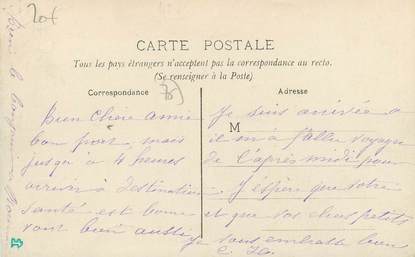 20f
CARTE POSTALE
Tous les pays étrangers n'acceptent pas la correspondance au recto.
(Se renseigner à la Poste)
Correspondance
Adresse
M
Bien Chère Amie
bon port, mais
jusqu'à 4 heures
à destination
santé est bonne
vont bien aussi
Je suis arrivée à
il m'a fallu voyager
de l'après midi pour
J'espère que votre
et que vos chers petits
Je vous embrasse bien